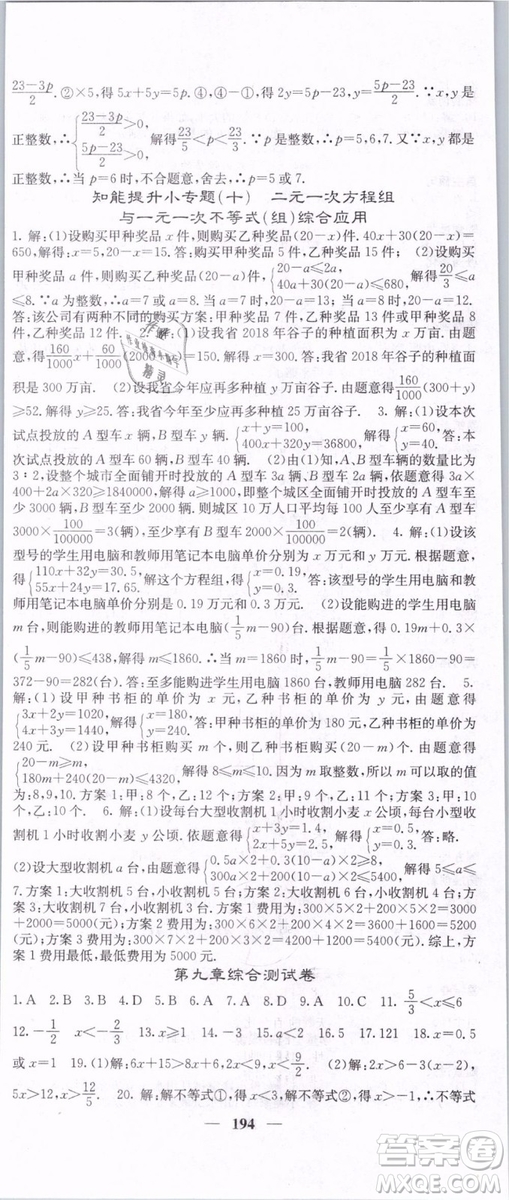 (23-3p)/2. ②×5,得 5x+5y=5p. ④,④-①,得 2y=5p-23,∴y=(5p-23)/2. ∵x,y 是
正整数,∴{(23-3p)/2>0, (5p-23)/2>0, ∴23/5<p<23/3. ∵p 是整数,∴p=5,6,7. 又∵x,y 是
正整数,∴当 p=6 时,不合题意,舍去,∴p=5 或 7.
知能提升小专题(十) 二元一次方程组
与一元一次不等式(组)综合应用
1. 解:(1)设购买甲种奖品 x 件,则购买乙种奖品(20-x)件. 40x+30(20-x)=
650,解得 x=5,20-x=15. 答:购买甲种奖品 5 件,乙种奖品 15 件; (2)设购买
甲种奖品 a 件,则购买乙种奖品(20-a)件,则{20-a≤2a, 40a+30(20-a)≤680, 解得 20/3≤a
≤8. ∵a 为整数,∴a=7 或 a=8. 当 a=7 时,20-a=13;当 a=8 时,20-a=12.
答:该公司有两种不同的购买方案:甲种奖品 7 件,乙种奖品 13 件或甲种奖品 8
件,乙种奖品 12 件. 2. 解:(1)设我省 2018 年谷子的种植面积为 x 万亩. 由题
意,得 160/1000 x+60/1000(2000-x)=150,解得 x=300. 答:我省 2018 年谷子的种植面
积是 300 万亩. (2)设我省今年应再多种植 y 万亩谷子. 由题意,得 160/1000(300+y)
≥52. 解得 y≥25. 答:我省今年至少应再多种植 25 万亩谷子. 3. 解:(1)设本次
试点投放的 A 型车 x 辆,B 型车 y 辆. 根据题意,得{x+y=100, 400x+320y=36800, 解得{x=60, y=40. 答:本
次试点投放的 A 型车 60 辆,B 型车 40 辆; (2)由(1)知,A,B 型车辆的数量比为
3∶2,设整个城市全面铺开时投放的 A 型车 3a 辆,B 型车 2a 辆,依题意得 3a
×400+2a×320≥1840000,解得 a≥1000,即整个城区全面铺开时投放的 A 型车
至少 3000 辆,B 型车至少 2000 辆,则城区 10 万人口平均每 100 人至少享有 A 型车
3000×100/100000=3(辆),至少享有 B 型车 2000×100/100000=2(辆). 4. 解:(1)设该
型号的学生用电脑和教师用笔记本电脑单价分别为 x 万元、y 万元. 根据题意,
得{110x+32y=30.5, 55x+24y=17.65. 解这个方程组,得{x=0.19, y=0.3. 答:该型号的学生用电脑和教
师用笔记本电脑单价分别是 0.19 万元和 0.3 万元. (2)设能购进的学生用电脑
m 台,则能购进的教师用笔记本电脑(1/5 m-90)台,依题意,得 0.19m+0.3×
(1/5 m-90)≤438,解得 m≤1860,当 m=1860 时,1/5 m-90=1/5×1860-90=
372-90=282. 答:至多能购进学生用电脑 1860 台,教师用电脑 282 台. 5.
解:(1)设甲种书柜的单价为 x 元,乙种书柜的单价为 y 元. 根据题意,得
{3x+2y=1020, 4x+3y=1440, 解得{x=180, y=240. 答:甲种书柜的单价为 180 元,乙种书柜的单价为
240 元. (2)设甲种书柜购买 m 个,则乙种书柜购买(20-m)个. 根据题意,得
{20-m≥m, 180m+240(20-m)≤4320, 解得 8≤m≤10. 因为 m 取整数,所以 m 可以取值为:
8,9,10. 方案 1:甲:8 个,乙:12 个;方案 2:甲:9 个,乙:11 个;方案 3:甲:10
个,乙:10 个. 6. 解:(1)设每台大型收割机 1 小时收割小麦 x 公顷,每台小型收
割机 1 小时收割小麦 y 公顷. 依题意得{x+3y=1.4, 2x+5y=2.5, 解得{x=0.5, y=0.3. 答:略.
(2)设大型收割机 a 台,依题意得{0.5a×2+0.3(10-a)×2≥8, 300a×2+200(10-a)×2≤5400, 解得 5≤a≤
7. 方案 1:大收割机 5 台,小收割机 5 台,方案 2:大收割机 6 台,小收割机 4 台;方
案 3:大收割机 7 台,小收割机 3 台. 方案 1 费用为:300×5×2+200×5×2=3000
+2000=5000(元);方案 2 费用为:300×6×2+200×4×2=3600+1600=5200
(元);方案 3 费用为:300×7×2+200×3×2=4200+1200=5400(元). 综上,方
案 1 费用最低,最低费用为 5000 元.
第九章综合测试卷
1. A 2. D 3. C 4. D 5. A 6. A 7. B 8. B 9. D 10. C 11. 5/3<x≤6
12. -1 x<-2/3 13. 1 14. a≥2 15. a≤2 16. 4 17. 121 18. x>3
或 x=1 19. (1)解:6x+15>8x+6,-2x>-9,x<9/2. (2)解:2x>6-3(x-2),
5x>12,x>12/5. 20. 解:解不等式①,得 x<1,解不等式②,得 x>-1,∴不等式
194
答案圈